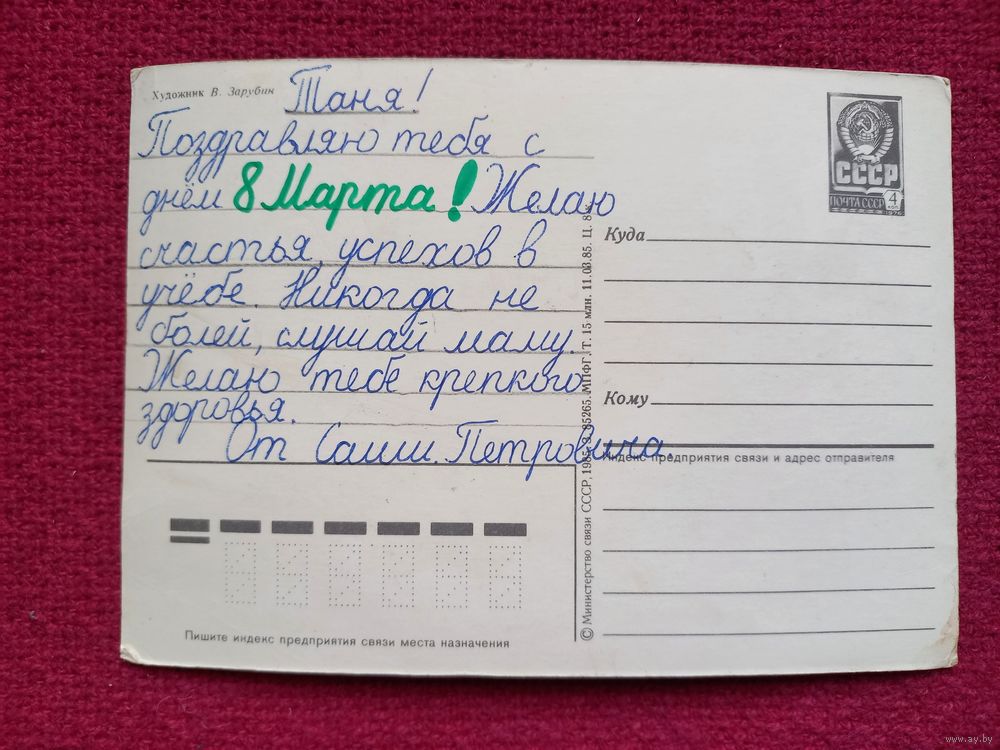 Художник В. Зарубин
Таня!
Поздравляю тебя с
днём 8 Марта! Желаю
счастья, успехов в
учёбе. Никогда не
болей, слушай маму.
Желаю тебе крепкого
здоровья.
От Саши Петровича.
Пишите индекс предприятия связи места назначения
© Министерство связи СССР, 1985. З. 85265. МПФГ. Т. 15 млн. 11.03.85. Ц. 8 к.
СССР
ПОЧТА СССР
4
коп
1976
Куда
Кому
Индекс предприятия связи и адрес отправителя
www.ay.by